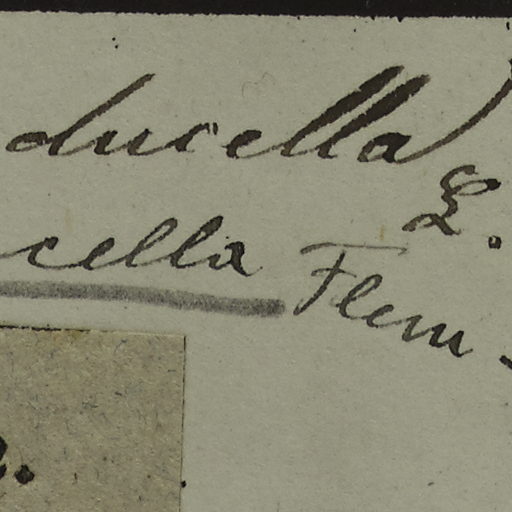 ducella L.
cella Flem.